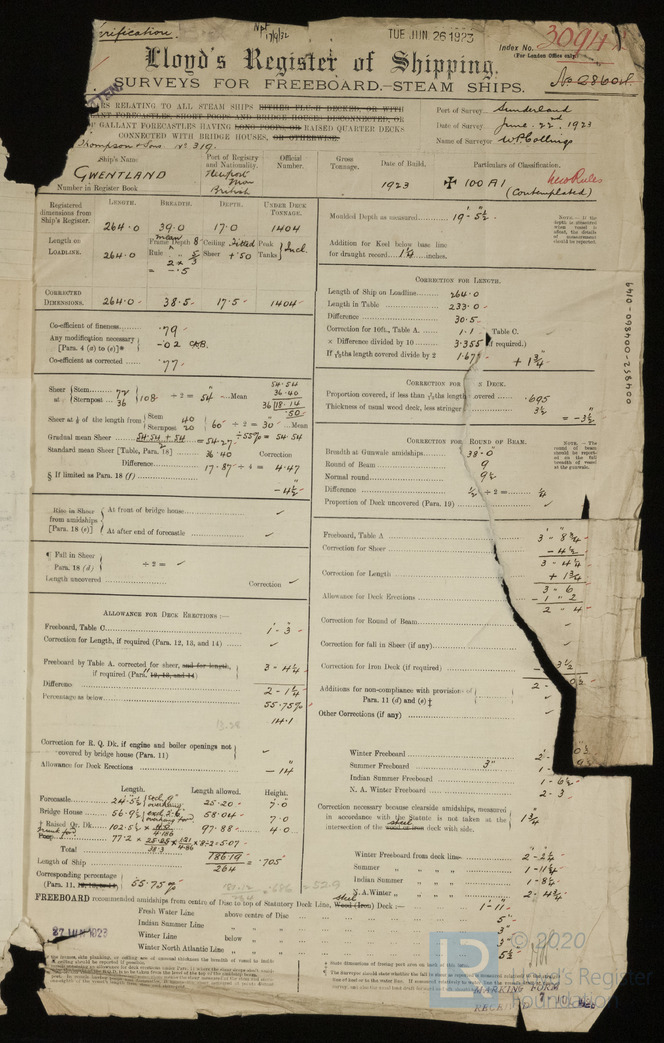 TUE JUN 26 1923
Index No. 30941
(For London Office only)
No 28604
Lloyd's Register of Shipping.
SURVEYS FOR FREEBOARD.—STEAM SHIPS.
RELATING TO ALL STEAM SHIPS EITHER FLUSH DECKED, OR WITH
FORECASTLES, SHORT POOPS AND BRIDGE HOUSES DISCONNECTED, OR
GALLANT FORECASTLES HAVING LONG POOPS, OR RAISED QUARTER DECKS
CONNECTED WITH BRIDGE HOUSES, OR OTHERWISE.
Thompson & Sons. No 319.
Port of Survey Sunderland
Date of Survey June 22nd 1923
Name of Surveyor
Ship's Name
GWENTLAND
Number in Register Book
Port of Registry and Nationality.
Newport
Mon
British
Official Number.
Gross Tonnage.
Date of Build.
1923
Particulars of Classification.
✠ 100 A1
(Contemplated)
New Rules
Registered dimensions from Ship's Register.
LENGTH. BREADTH. DEPTH. UNDER DECK TONNAGE.
264.0 39.0 17.0 1404
Length on LOADLINE.
264.0
Frame Depth 8" Ceiling Fitted Peak Tanks Incl.
Rule
Sheer + .50
= -.5
CORRECTED DIMENSIONS. 264.0 38.5 17.5 1404
Co-efficient of fineness .79
Any modification necessary [Para. 4 (a) to (e)]* -.02
Co-efficient as corrected .77
Sheer at Stem 72 Sternpost 36 108 ÷ 2 = 54 Mean
54.54
36.40
36 18.14
.50
Sheer at ⅛ of the length from Stem 40 Sternpost 20 60 ÷ 2 = 30 Mean
Gradual mean Sheer 54.54 + 54 = 54.27 ÷ 55% = 54.54
Standard mean Sheer [Table, Para. 18] 36.40 Correction
Difference 17.87 ÷ 4 = 4.47
§ If limited as Para. 18 (f)
- 4½
Rise in Sheer from amidships [Para. 18 (e)] At front of bridge house
At after end of forecastle
¶ Fall in Sheer Para. 18 (d) ÷ 2 =
Length uncovered Correction
ALLOWANCE FOR DECK ERECTIONS:—
Freeboard, Table C. 1 - 3
Correction for Length, if required (Para. 12, 13, and 14)
Freeboard by Table A. corrected for sheer, and for length, if required (Para. 12, 13, and 14) 3 - 4¼
Difference 2 - 1¼
Percentage as below 55.75%
14.1
Correction for R. Q. Dk. if engine and boiler openings not covered by bridge house (Para. 11)
Allowance for Deck Erections - 14
Length. Length allowed. Height.
Forecastle 24.5½ 25.20 7.0
Bridge House 56.9½ 58.04 7.0
Raised Qr. Dk. 102.5½ 97.88 4.0
Poop 77.2
Total 186.19
Length of Ship 264 = .705
Corresponding percentage (Para. 11, 12, 13, and 14) 55.75%
Moulded Depth as measured 19 - 5½
NOTE.—If the depth is measured when vessel is afloat, the details of measurement should be reported.
Addition for Keel below base line for draught record 1¼ inches.
CORRECTION FOR LENGTH.
Length of Ship on Loadline 264.0
Length in Table 233.0
Difference 30.5
Correction for 10ft., Table A. 1.1 Table C.
× Difference divided by 10 3.355 (if required.)
If 6/10ths length covered divide by 2 1.67
+ 1¾
CORRECTION FOR DECK.
Proportion covered, if less than 7/10ths length covered .695
Thickness of usual wood deck, less stringer 3½
= - 3½
CORRECTION FOR ROUND OF BEAM.
Breadth at Gunwale amidships 38'.0"
Round of Beam 9
Normal round 9½
Difference ½ ÷ 2 = ¼
Proportion of Deck uncovered (Para. 19)
NOTE.—The round of beam should be reported on the full breadth of vessel at the gunwale.
Freeboard, Table A 3 - 8¾
Correction for Sheer - 4½
3 - 4¼
Correction for Length + 1¾
3 - 6
Allowance for Deck Erections - 1 - 2
2 - 4
Correction for Round of Beam
Correction for fall in Sheer (if any)
Correction for Iron Deck (if required) - 3½
2 - 0½
Additions for non-compliance with provisions of Para. 11 (d) and (e)
Other Corrections (if any)
Winter Freeboard 2 - 0½
Summer Freeboard 3" 1 - 9½
Indian Summer Freeboard 1 - 6½
N. A. Winter Freeboard 2 - 3
Correction necessary because clearside amidships, measured in accordance with the Statute is not taken at the intersection of the wood or iron steel deck with side. 1¾
Winter Freeboard from deck line 2 - 2¼
Summer 1 - 11¼
Indian Summer 1 - 8¼
N.A. Winter 2 - 4¾
FREEBOARD recommended amidships from centre of Disc to top of Statutory Deck Line, Wood (Iron) steel Deck :— 1' - 11"
Fresh Water Line above centre of Disc 5"
Indian Summer Line 3"
Winter Line below 3"
Winter North Atlantic Line 5½
27 JUN 1923
004852-004860-0149
MARKING FORM
RECEIVED
© 2020
Lloyd's Register
Foundation